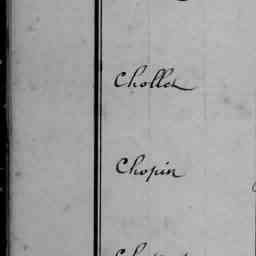 Chollet
Chopin